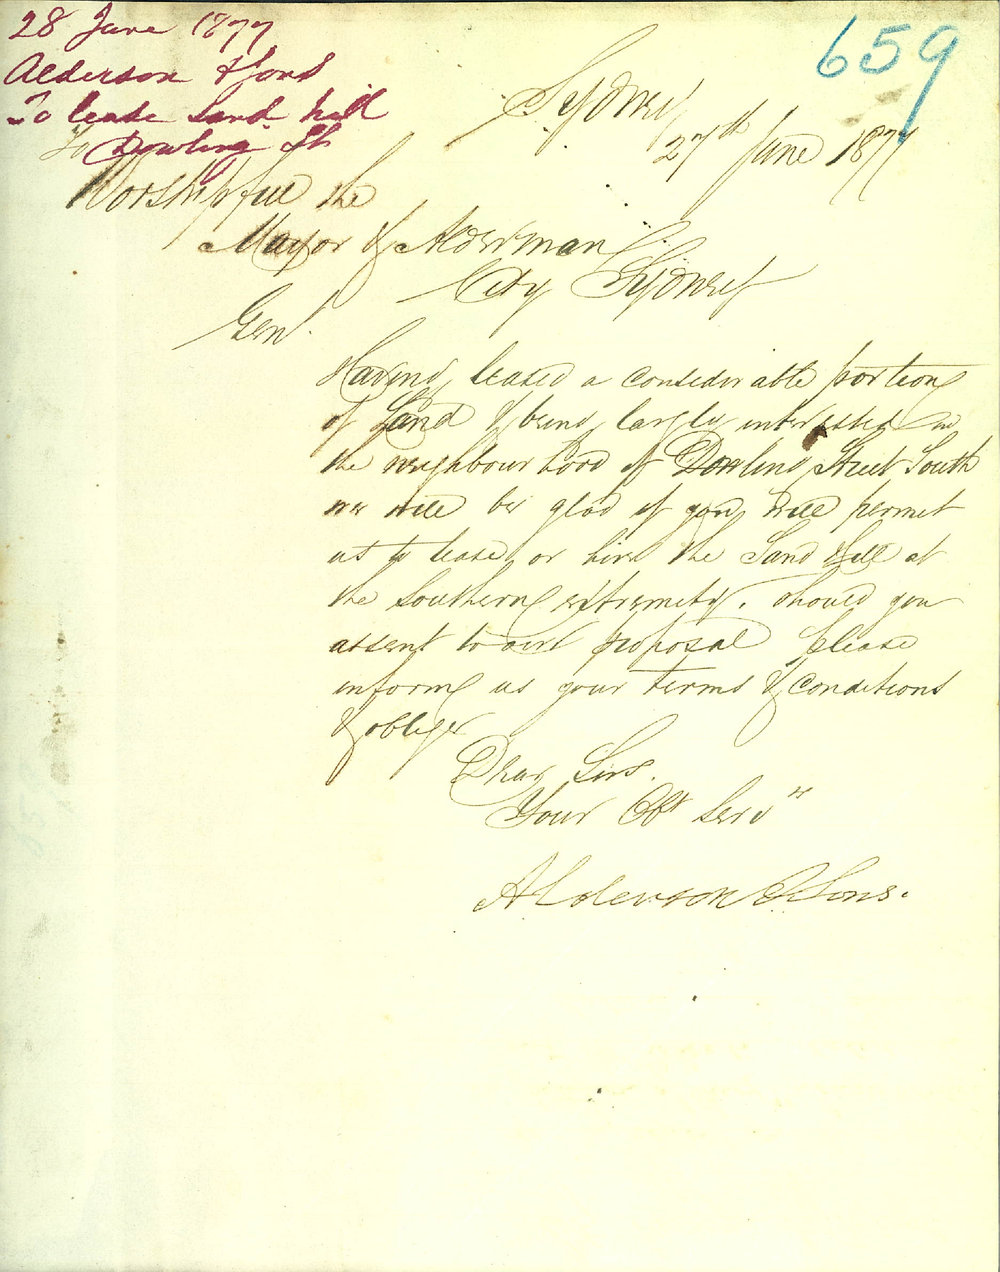 28 June 1877
Alderson & Sons
To lease Sand hill
Dowling St
659
Sydney
27th June 1877
To
Worshipfull the
Mayor & Alderman
City Sydney
Gen.
Having leased a considerable portion
of Land & being largly interested in
the neighbourhood of Dowling Street South
we will be glad if you will permit
us to lease or hire the Sand Hill at
the Southern extremety. Should you
assent to our proposal please
inform us your terms & conditions
& oblige
Dear Sirs.
Your Obt Servts
Alderson & Sons.